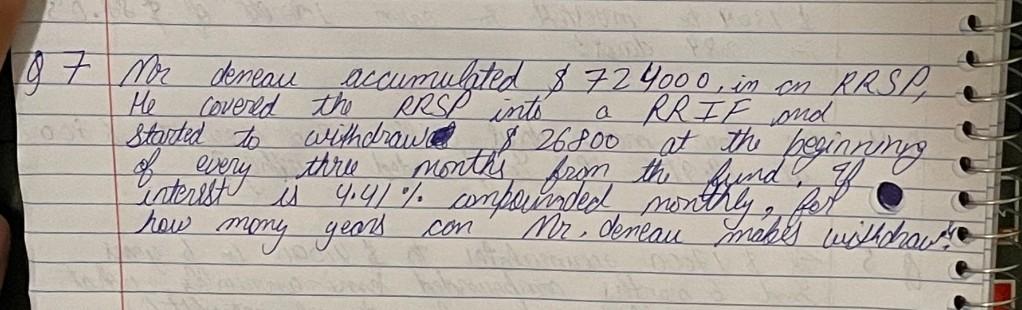 Q 7 Mr deneau accumulated $ 724000, in an RRSP,
He covered the RRSP into a RRIF and
started to withdraw $ 26800 at the beginning
of every three months from the fund. If
interest is 4.41 % compounded monthly, for
how many years can Mr. deneau makes withdraw?